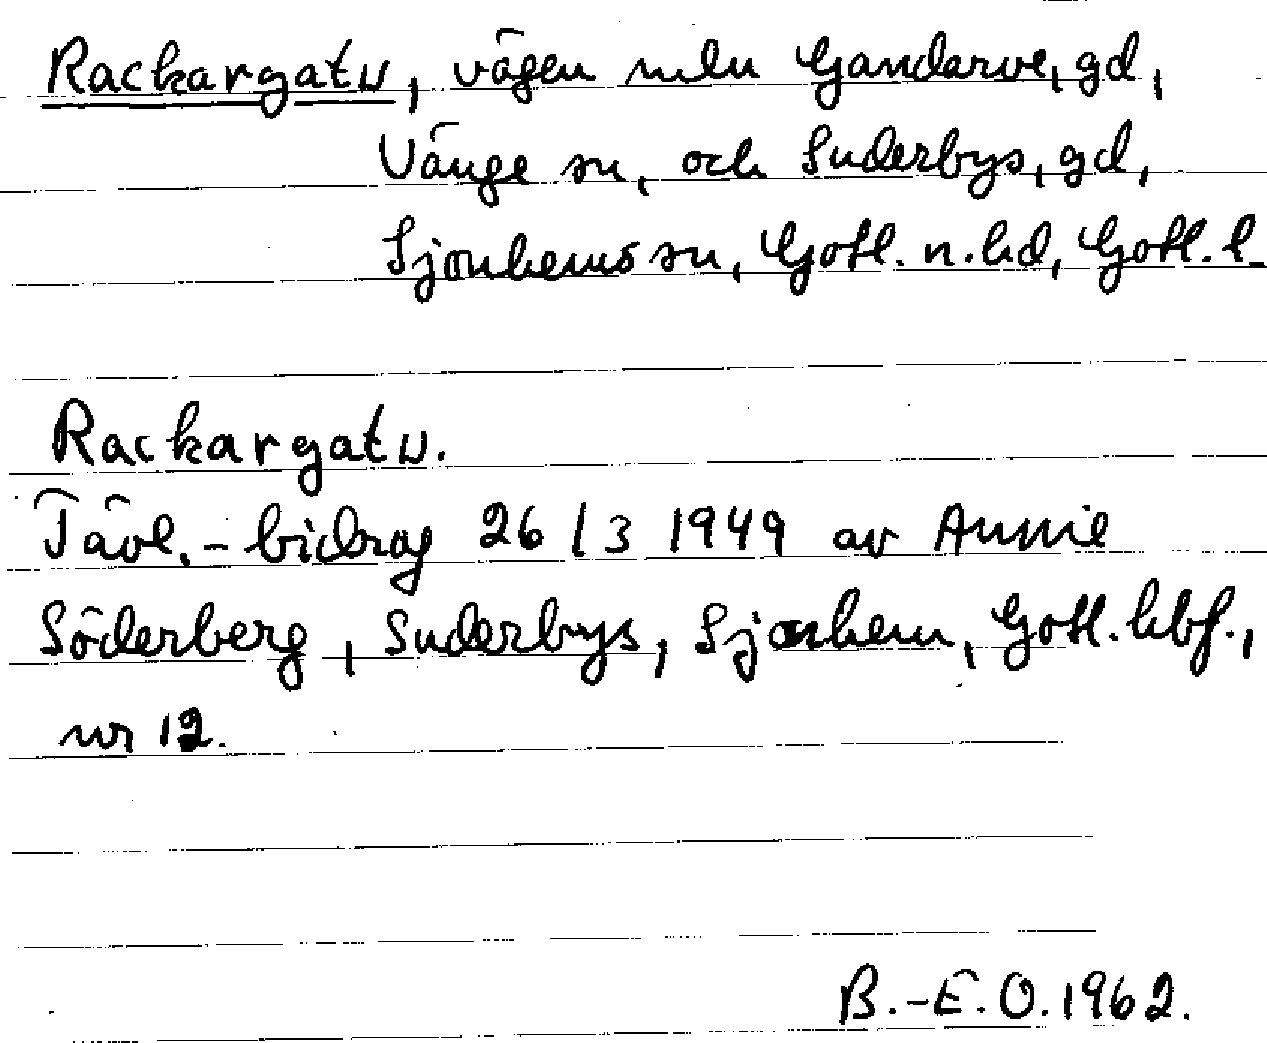 Rackargatu, vägen mln Ganderve, gd,
Vänge sn, och Suderbys, gd,
Sjonhems sn, Gotl. n. hd, Gotl. l
Rackargatu.
Tävl.-bidrag 26/3 1949 av Annie
Söderberg, Suderbys, Sjonhem, Gotl. hbf.,
nr 12.
B.-E. O. 1962.